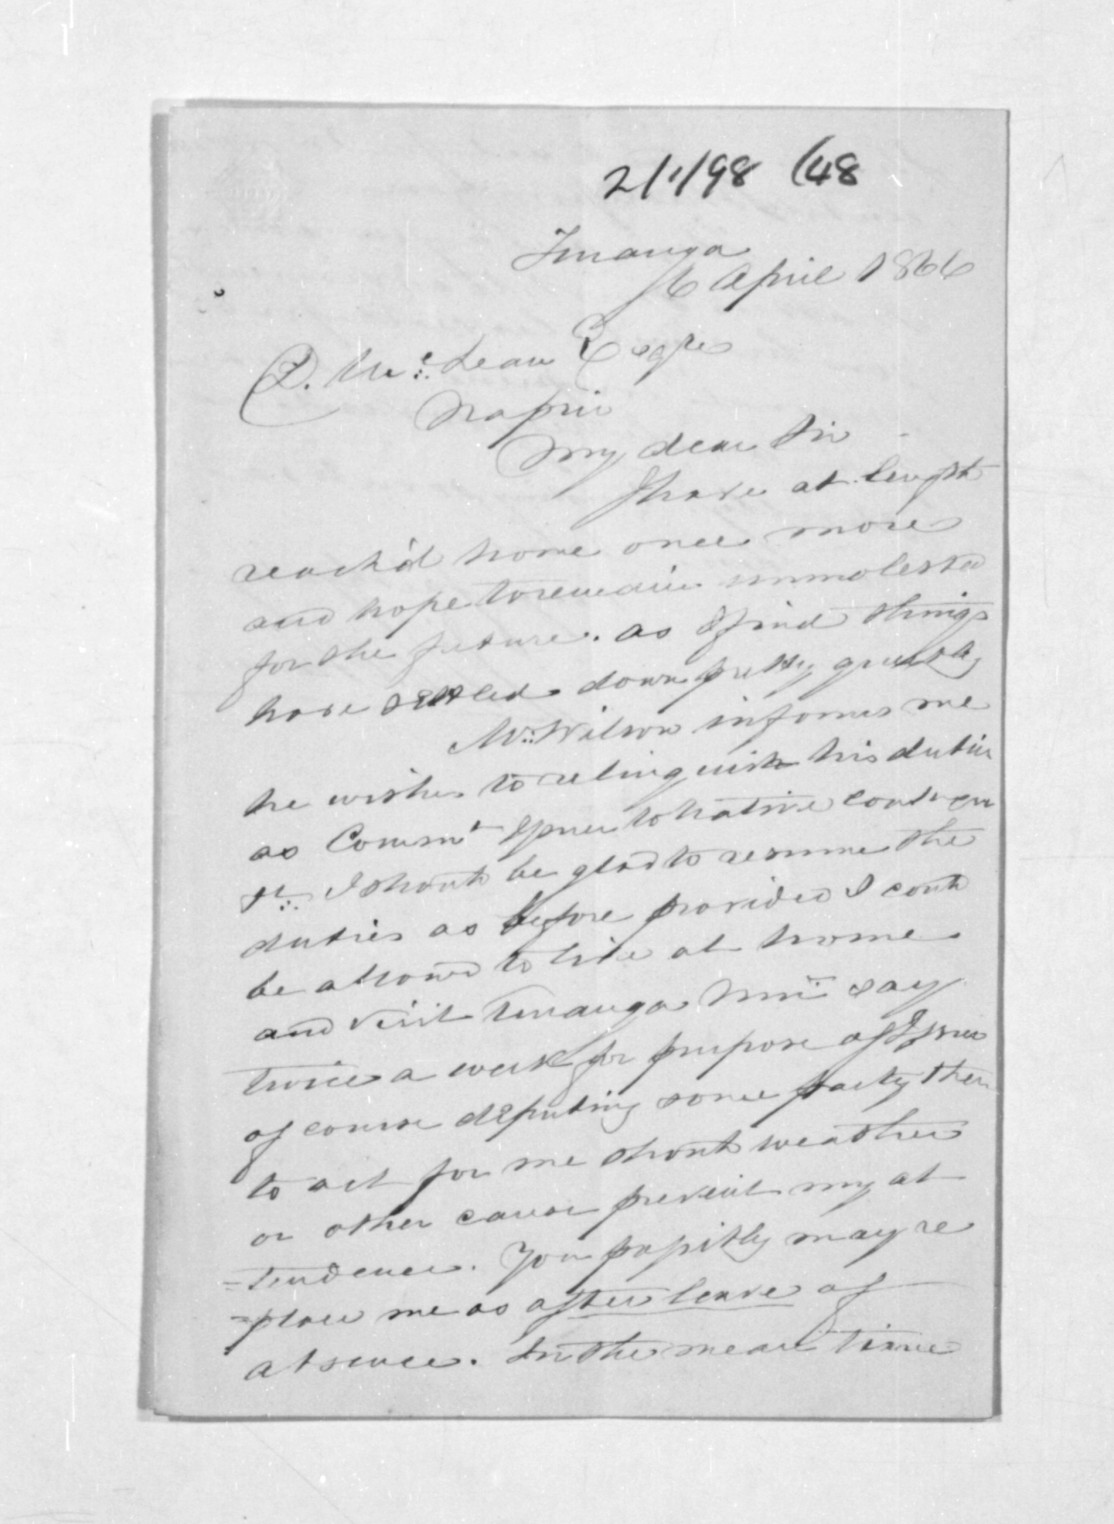 2/1/98 (48
Turanga
16 April 1866
D. McLean Esqre
Napier
My dear Sir
I have at length
reach'd home once more
and hope to remain unmolested
for the future. as I find things
have settled down pretty quietly
Mr. Wilson informs me
he wishes to relinquish his duties
as Commt Issuer to Native
I should be glad to resume the
duties as before provided I could
be allowed to live at home
and visit Turanga say
twice a week for purpose of Issue
of course deputing some party then
to act for me should weather
or other cause prevent my at
=tendence. You possibly may re
=place me as after leave of
absence. In the mean time